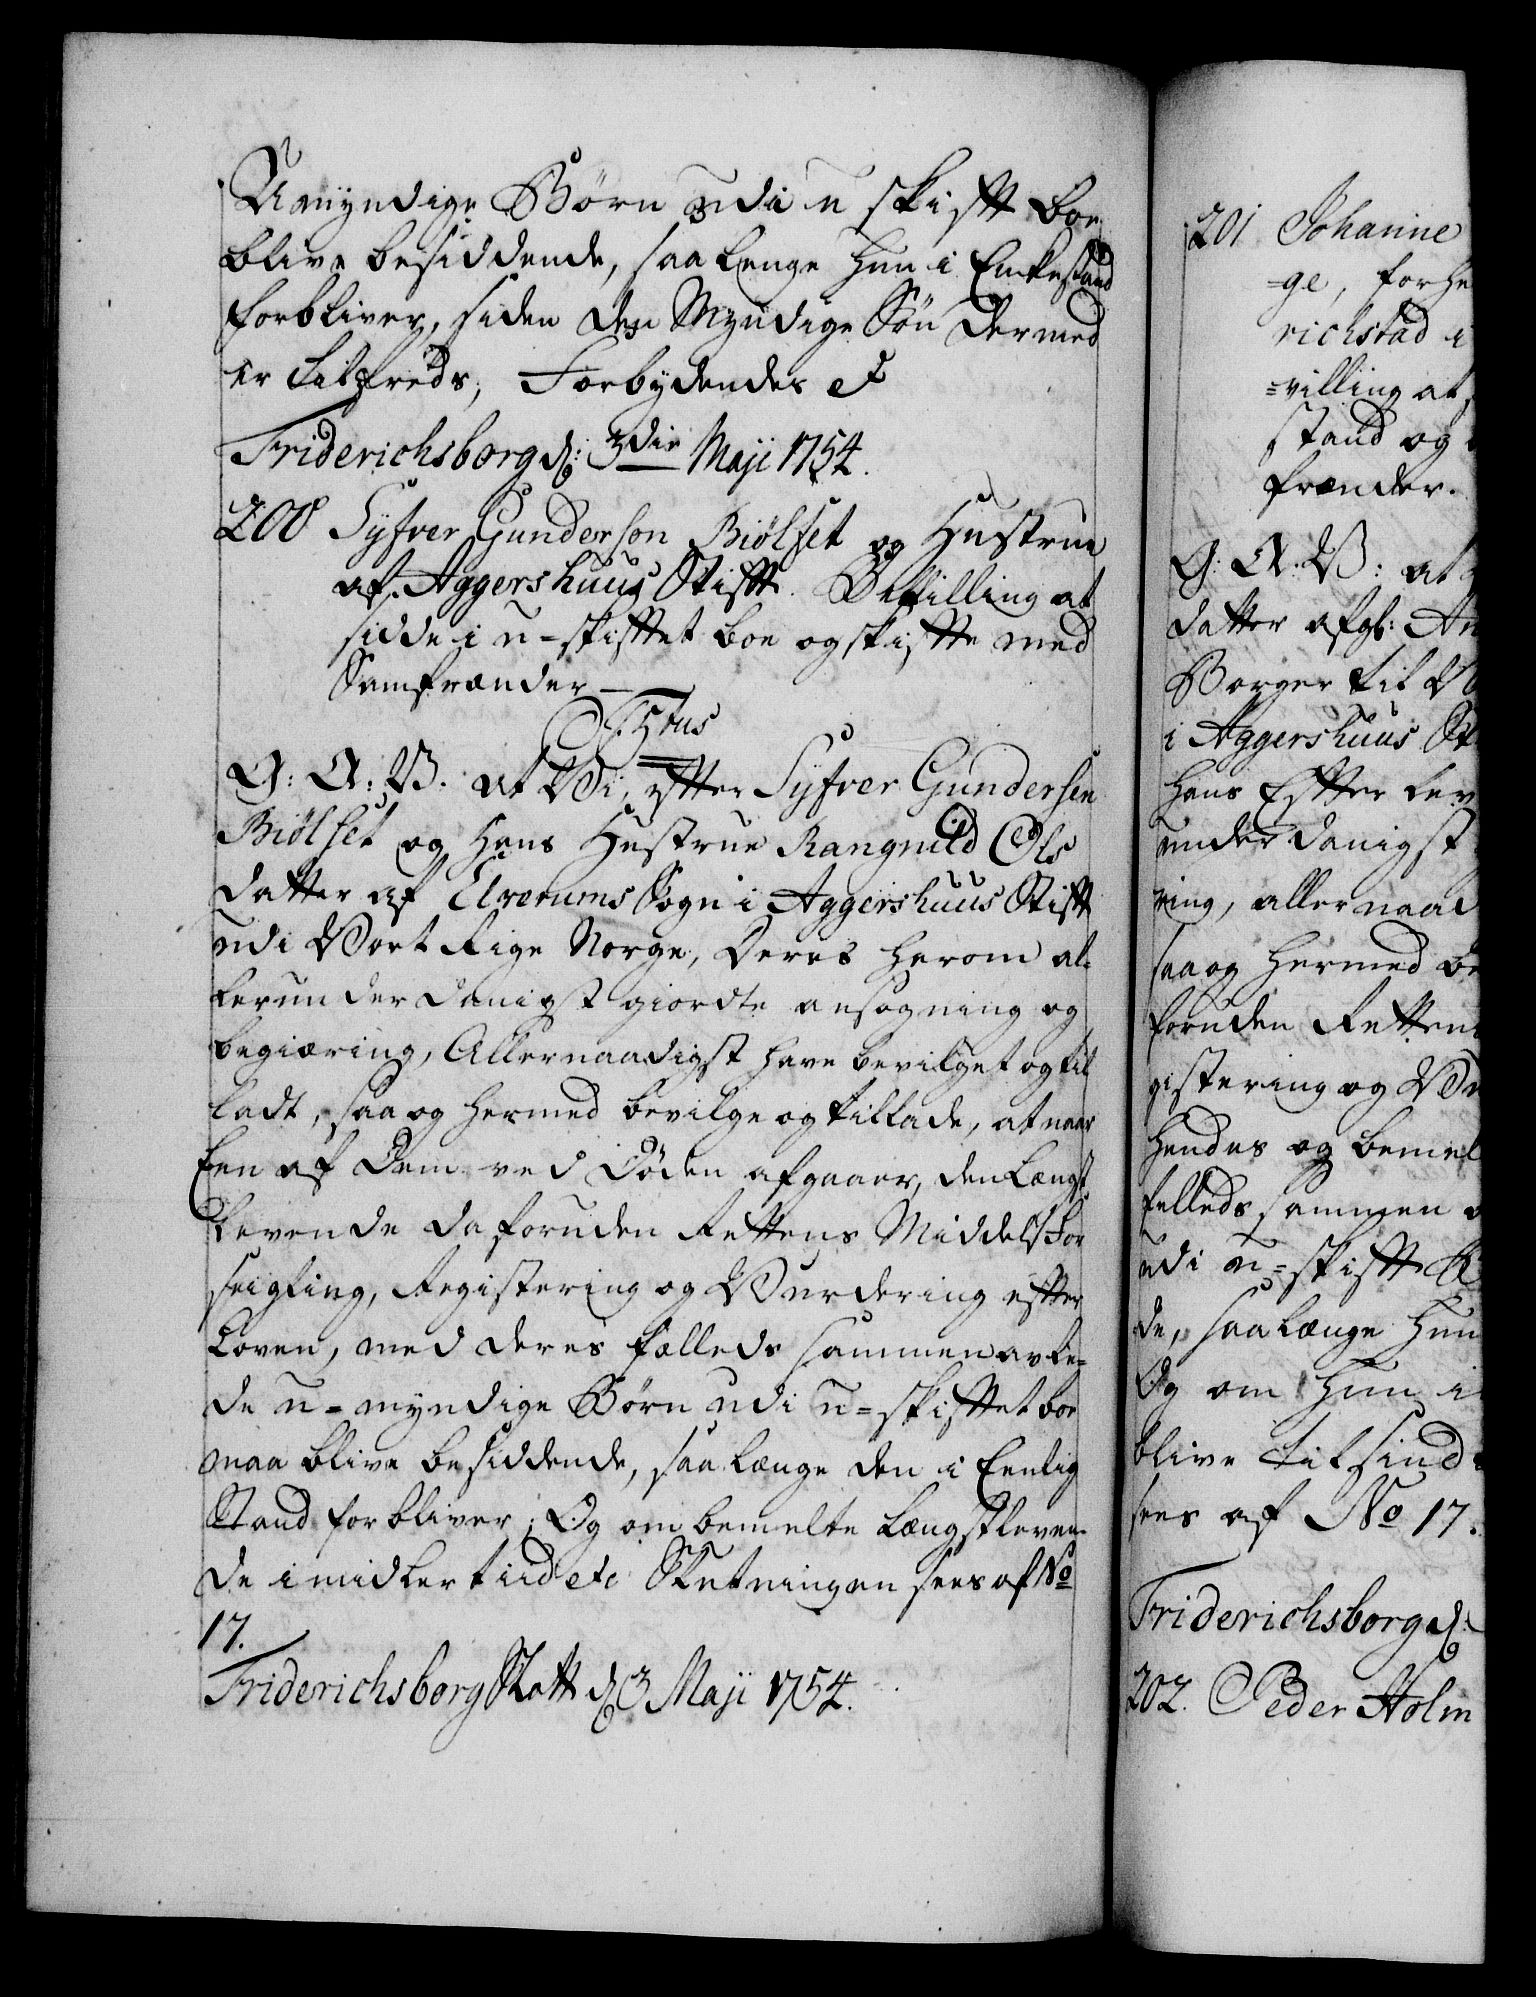 Umyndige Børn udi u skift boe
blive besiddende, saa lenge hun i Enkestand
forbliver, siden den Myndige Søn dermed
er tilfreds, Forbydendes etc
Friderichsborg d: 3die Maji 1754.
200 Syfver Gundersøn Biølset og Hustrue
af Aggershuus Stift. Bevilling at
sidde i u-skiftet boe og skifte med
Samfrænder
G: A: V. at Vi, efter Syfver Gundersen
Biølset og Hans Hustrue Rangnild Ols
datter af Elverums Sogn i Aggershuus Stift
udi Vort Rige Norge, Deres herom al-
lerunderdanigst giordte ansøgning og
begiæring, Allernaadigst have bevilget og til
ladt, saa og hermed bevilge og tillade, at naar
Een af Dem ved Døden afgaaer, den Længst
levende da foruden Rettens Middels For
seigling, Registering og Vurdering efter
Loven, med deres fælleds sammen avle-
de u-myndige Børn udi u-skiftet boe
maa blive besiddende, saa længe den i Eenlig
Stand forbliver; Og om bemelte Længstleven-
de imidlertiid etc Slutningen sees af No
17.
Friderichsborg Slott d 3 Maji 1754.
201 Johanne
-ge, forhe
richstad i
=villing at
stand og
frænder.
G: A: V: at
datter afgl: An
Borger til
i Aggershuus St
hans Efter lev
underdanigst
ring, allernaad
saa og hermed be
foruden Rettens
gistering og Vu
hendes og bemel
felleds sammen
udi u=skifte B
de, saa længe hun
Og om hun i
blive til sinds
sees af No 17.
Friderichsborg d:
202. Peder Holm